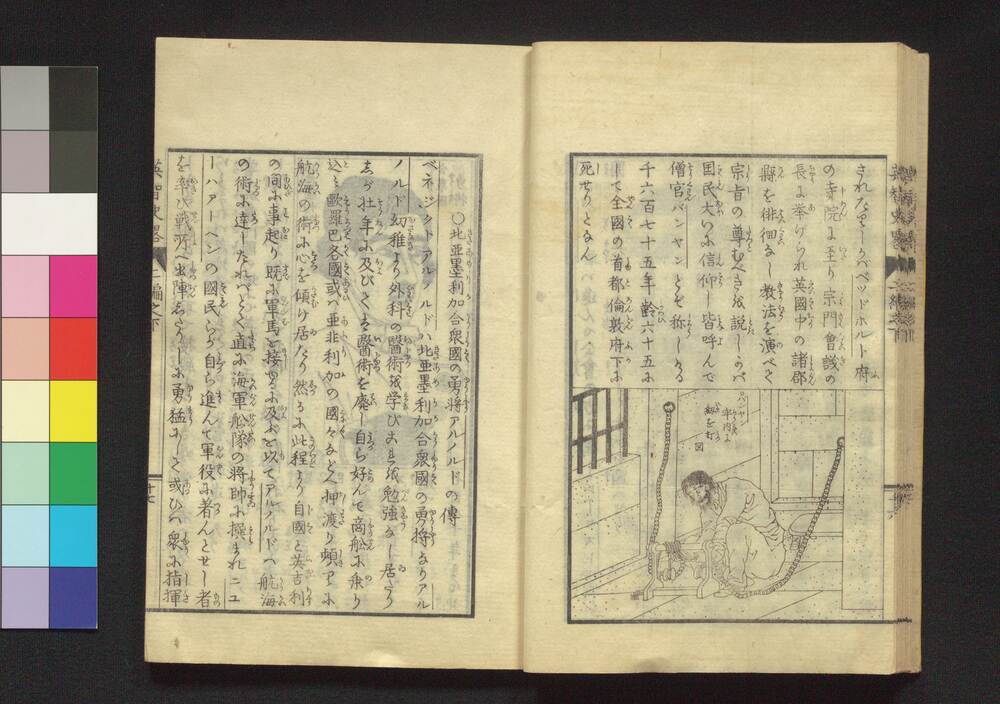 されたり
ベッドホルト府
の寺院に至り宗門會議の
長に挙げられ英國中の諸郡
縣を徘徊なし教法を演べて
宗旨の尊むべきを説しかバ
国民大いに信仰し皆呼んで
僧官バンヤンとぞ称しける
千六百七十五年齢六十五に
して全國の首都倫敦府下に
死せりとなん
バンヤン
牢内に
紐を打
図
○北亜墨利加合衆國の勇将アルノルドの傳
ベネジクトアルノルドハ北亜墨利加合衆國の勇将なりアル
ノルド幼稚より外科の醫術を学びおれを勉強なし居たり
しが壮年に及びて醫術を廃し自ら好んで商舩に乗り
込ミ歐羅巴各國或ハ亜非利加の國々などへ押渡り頻りに
航海の術に心を傾け居たり然るに此程より自國と英吉利
の間に事起り既に軍馬を接するに及ぶを以てアルノルドハ航海
の術に達したれバとて直に海軍舩隊の将帥に撰まれニユ
ーハアトヘンの國民らが自ら進んで軍役に着んとせし者
を率ひ戦所へ出陣したりしに勇猛にして或ひハ衆に指揮
二編之下
十七